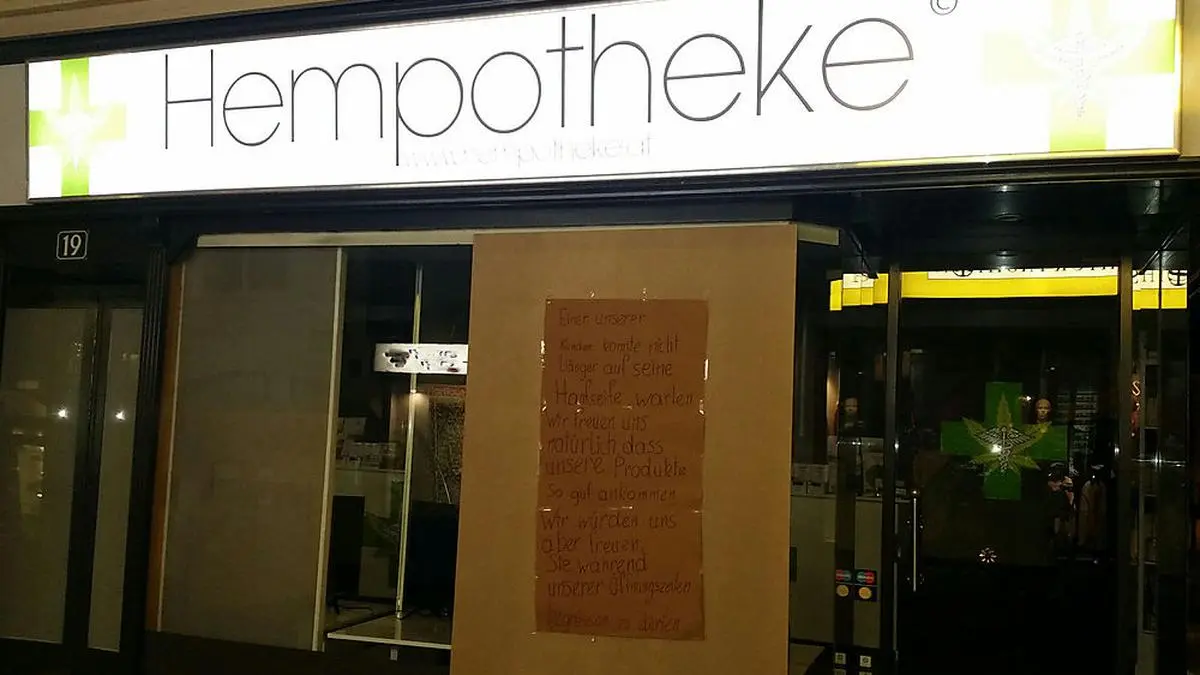 Hempotheke©
www.hempotheke.at
19
Einer unserer
Kunden konnte nicht
Länger auf seine
Hanfseife warten
wir freuen uns
natürlich dass
unsere Produkte
so gut ankommen
wir würden uns
aber freuen,
Sie während
unserer Öffnungszeiten
begrüssen zu dürfen